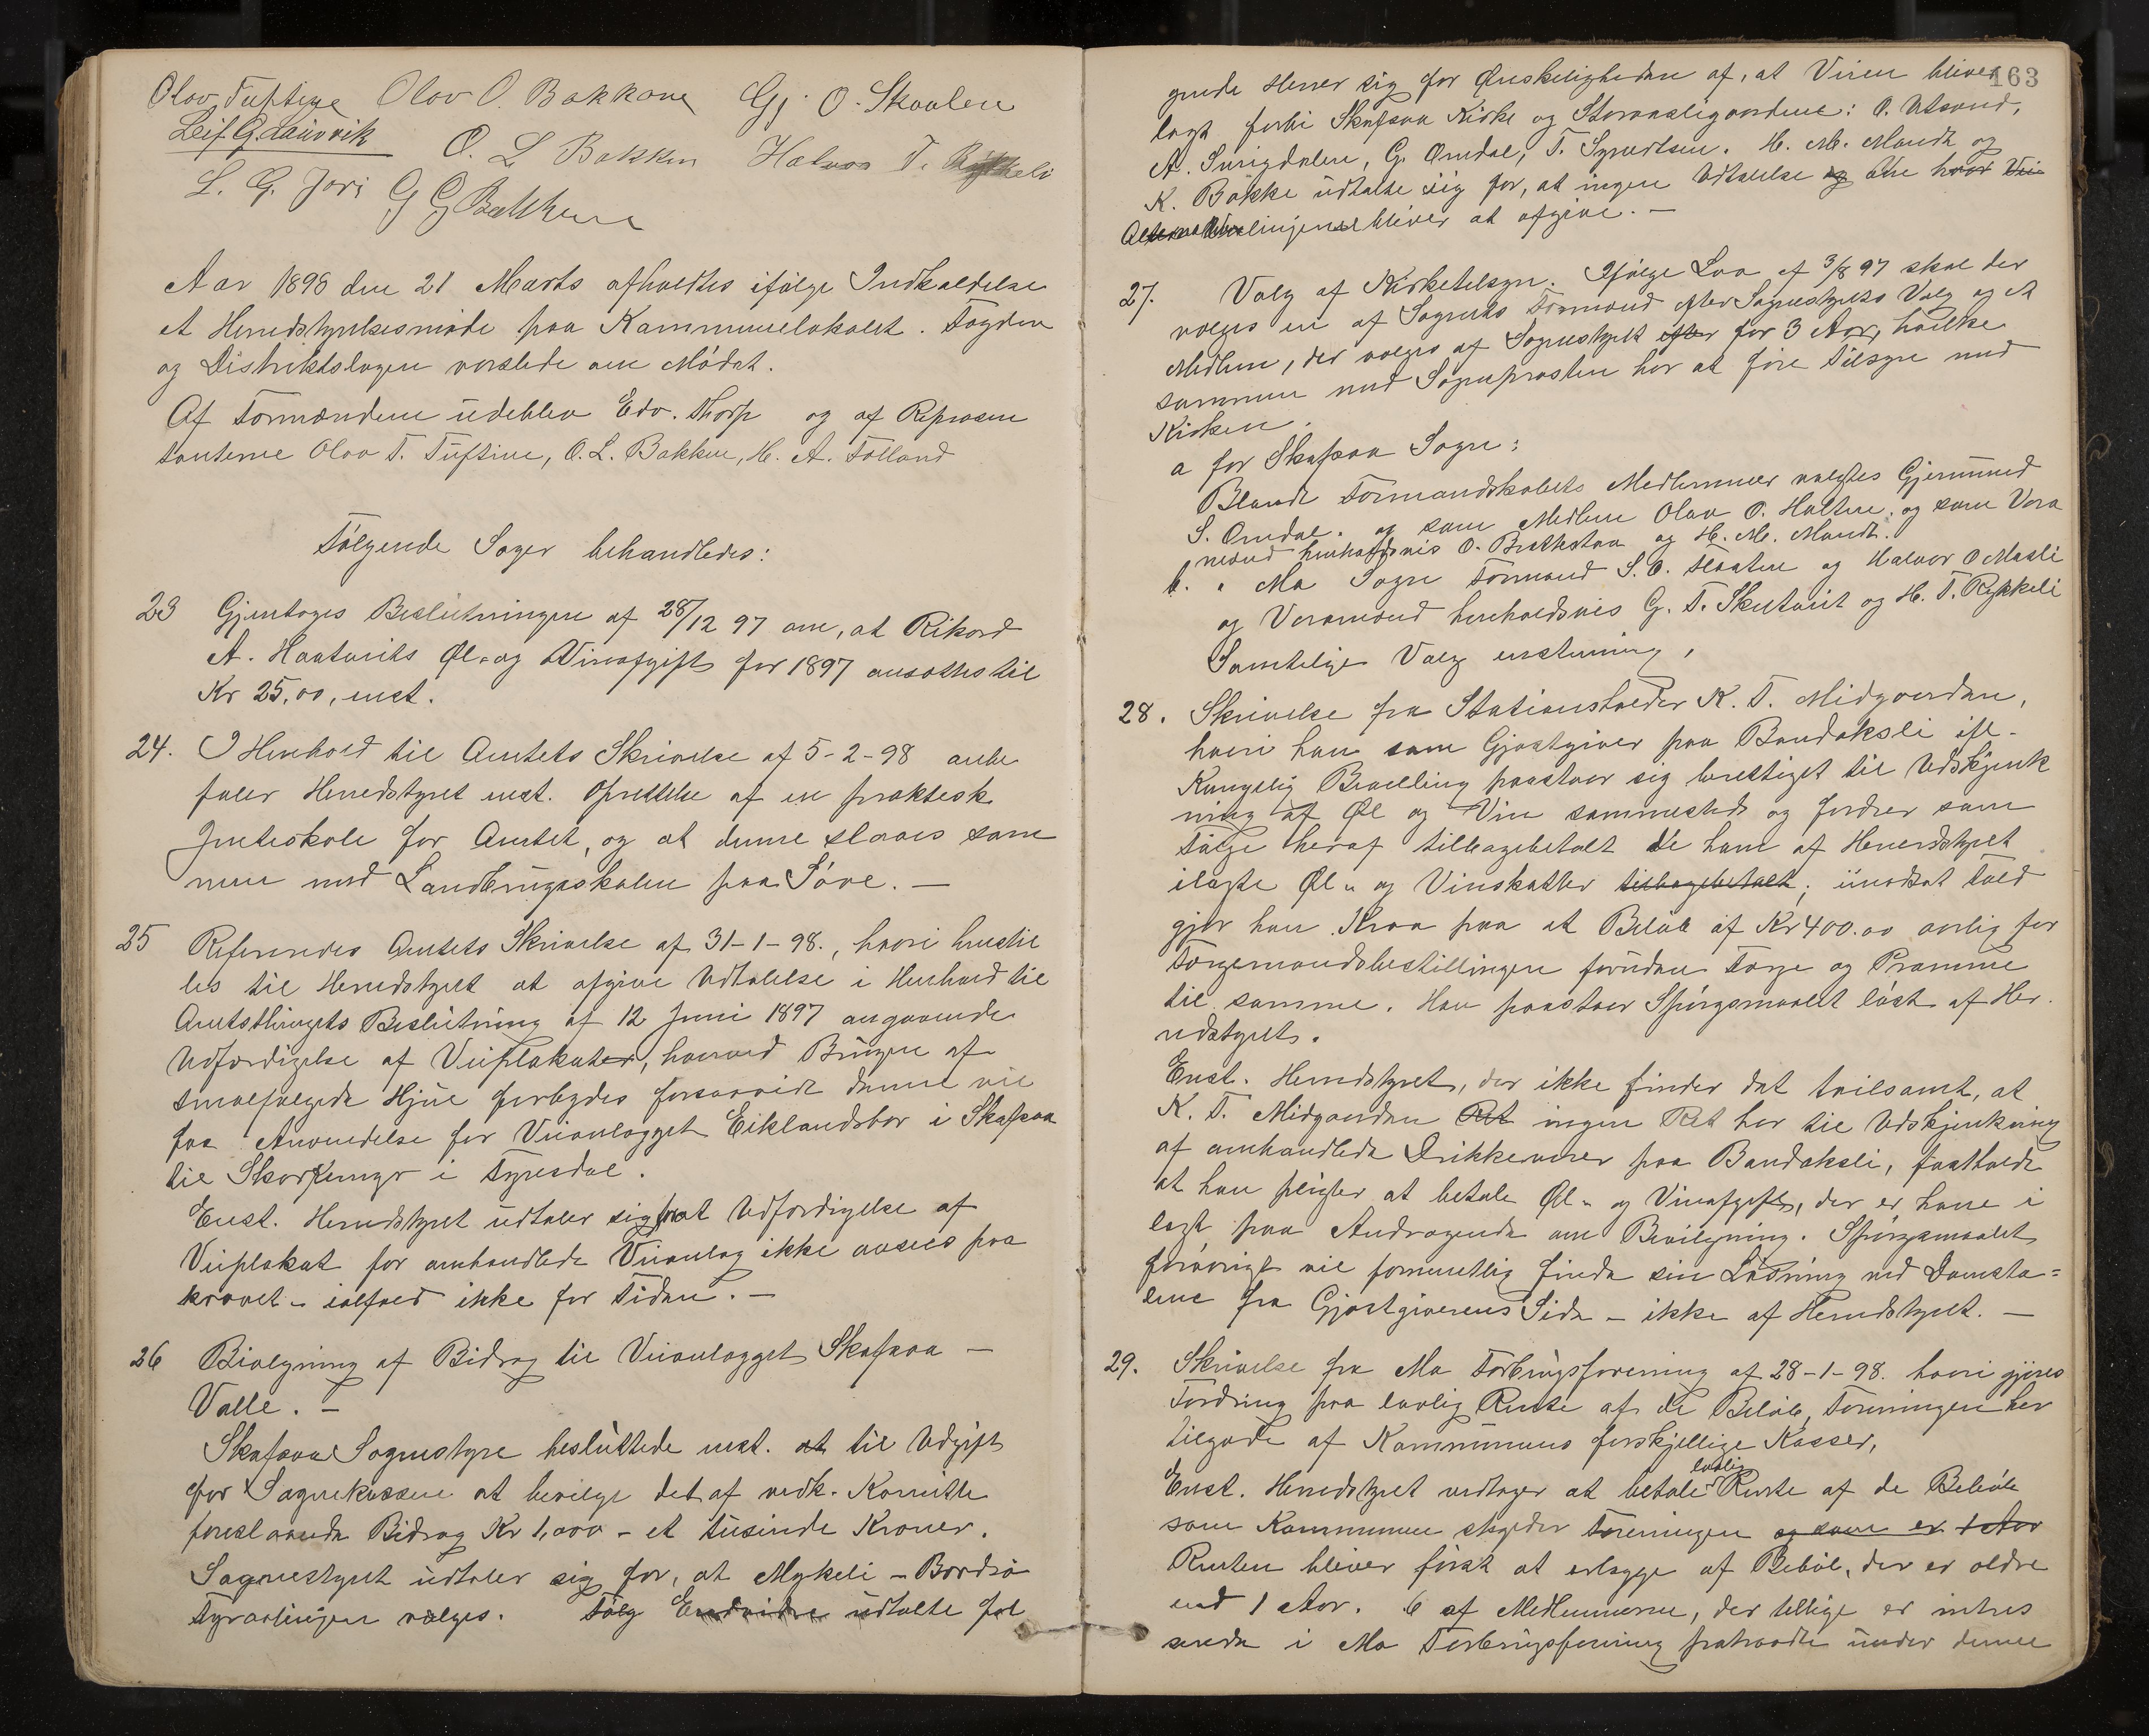 Olav Tuftine Olav O. Bakkane Gj. O. Skaalen
Leif G. Lauvvik
O. L. Bakken Halvor T. Rykkeli
L. G. Jori G G Bakken
Aar 1898 den 21 Marts afholdtes ifølge Indkaldelse
et Herredstyrelsesmøde paa Kommunelokalet. Fogden
og Distriktslægen varslede om Mødet.
Af Formændene udeblev Edv. Thorp og af Repræsen
tanterne Olav T. Tuftine, O. L. Bakken, H. A. Folland
Følgende Sager behandledes:
23 Gjentoges Beslutningen af 28/12 97 om, at Rikard
A. Haatveits Øl- og Vinafgift for 1897 ansættes til
Kr 25,00, enst.
24. I Henhold til Amtets Skrivelse af 5-2-98 anbe
faler Herredstyret enst. Oprettelse af en praktisk
Jenteskole for Amtet, og at denne slaaes sam
men med Landbrugsskolen paa Søve. —
25 Refereredes Amtets Skrivelse af 31-1-98., hvori henstil
les til Herredstyret at afgive Udtalelse i Henhold til
Amtsthingets Beslutning af 12 Juni 1897 angaaende
Udfærdigelse af Veiplakater, hvorved Brugen af
smalfælgede Hjul forbydes forsaavidt denne vil
faa Anvendelse for Veianlægget Eiklandsbør i Skafsaa
til Skarkemyr i Fyresdal.
Enst. Herredstyret udtaler sig for at Udfærdigelse af
Veiplakat for omhandlede Veianlæg ikke ansees paa
krævet – ialfald ikke for Tiden. —
26 Bevilgning af Bidrag til Veianlægget Skafsaa —
Valle. —
Skafsaa Sognestyre besluttede enst. at til Udgift
for Sognekassen at bevilge det af vedk. Komitte
foreslaaede Bidrag Kr 1,000 – et tusinde Kroner.
Sognestyret udtaler sig for, at Mykeli – Bordsø
dyraalinjen vælges. Følg Endvidre udtalte føl
163
gende Herrer sig for Ønskeligheden af, at Veien bliver
lagt forbi Skafsaa Kirke og Storvasligaardene: O. Utsund,
A. Suvigdalen, G. Omdal, T. Sjurdsen. H. M. Mandt og
K. Bakke udtalte sig for, at ingen Udtalelse og om hvor Vei
Alternativlinjerne bliver at afgive. —
27. Valg af Kirketilsyn. Ifølge Lov af 3/8 97 skal der
vælges en af Sognets Formænd efter Sognestyrets Valg og et
Medlem, der vælges af Sognestyret efter for 3 Aar, hvilke
sammen med Sognepræsten har at føre Tilsyn med
Kirken.
a for Skafsaa Sogn:
Blandt Formandskabets Medlemmer valgtes Gjermund
S. Omdal. og som Medlem Olav O. Halten. og som Vara
mænd henholdsvis O. Brækstaa og H. M. Mandt.
b. " Mo Sogn Formand S. O. Flaaten og Halvor O Maali
og Varamænd henholdsvis G. T. Skutveit og H. T. Rykkeli
Samtlige Valg enstemmig.
28. Skrivelse fra Stationsholder K. T. Midgaarden,
hvori han som Gjæstgiver paa Bandaksli ifl.
Kongelig Bevilling paastaar sig berettiget til Udskjænk
ning af Øl og Vin sammesteds og fordrer som
Følge heraf tilbagebetalt de ham af Herredstyret
ilagte Øl- og Vinskatter tilbagebetalt; i modsat Fald
gjør han Krav paa et Beløb af Kr 400.00 aarlig for
Færgemandsbestillingen foruden Færge og Pramme
til samme. Han paastaar Spørgsmaalet løst af Her
redstyret.
Enst. Herredstyret, der ikke finder det tvilsomt, at
K. T. Midgaarden Ret ingen Ret har til Udskjænkning
af omhandlede Drikkevarer paa Bandaksli, fastholder
at han pligter at betale Øl- og Vinafgift, der er ham i
lagt paa Andragende om Bevilgning. Spørgsmaalet
forøvrigt vil formentlig finde sin Løsning ved Domsto=
lene fra Gjæstgiverens Side – ikke af Herredstyret. —
29. Skrivelse fra Mo Forbrugsforening af 28-1-98. hvori gjøres
Fordring paa lovlig Rente af de Beløb, Foreningen har
tilgode af Kommunens forskjellige Kasser,
Enst. Herredstyret vedtager at betale lovlig Rente af de Beløb
som Kommunen skylder Foreningen og som er 1 Aar
Renten bliver først at erlægge af Beløb, der er ældre
end 1 Aar. 6 af Medlemmerne, der tillige er intres
serede i Mo Forbrugsforening fratraadte under denne